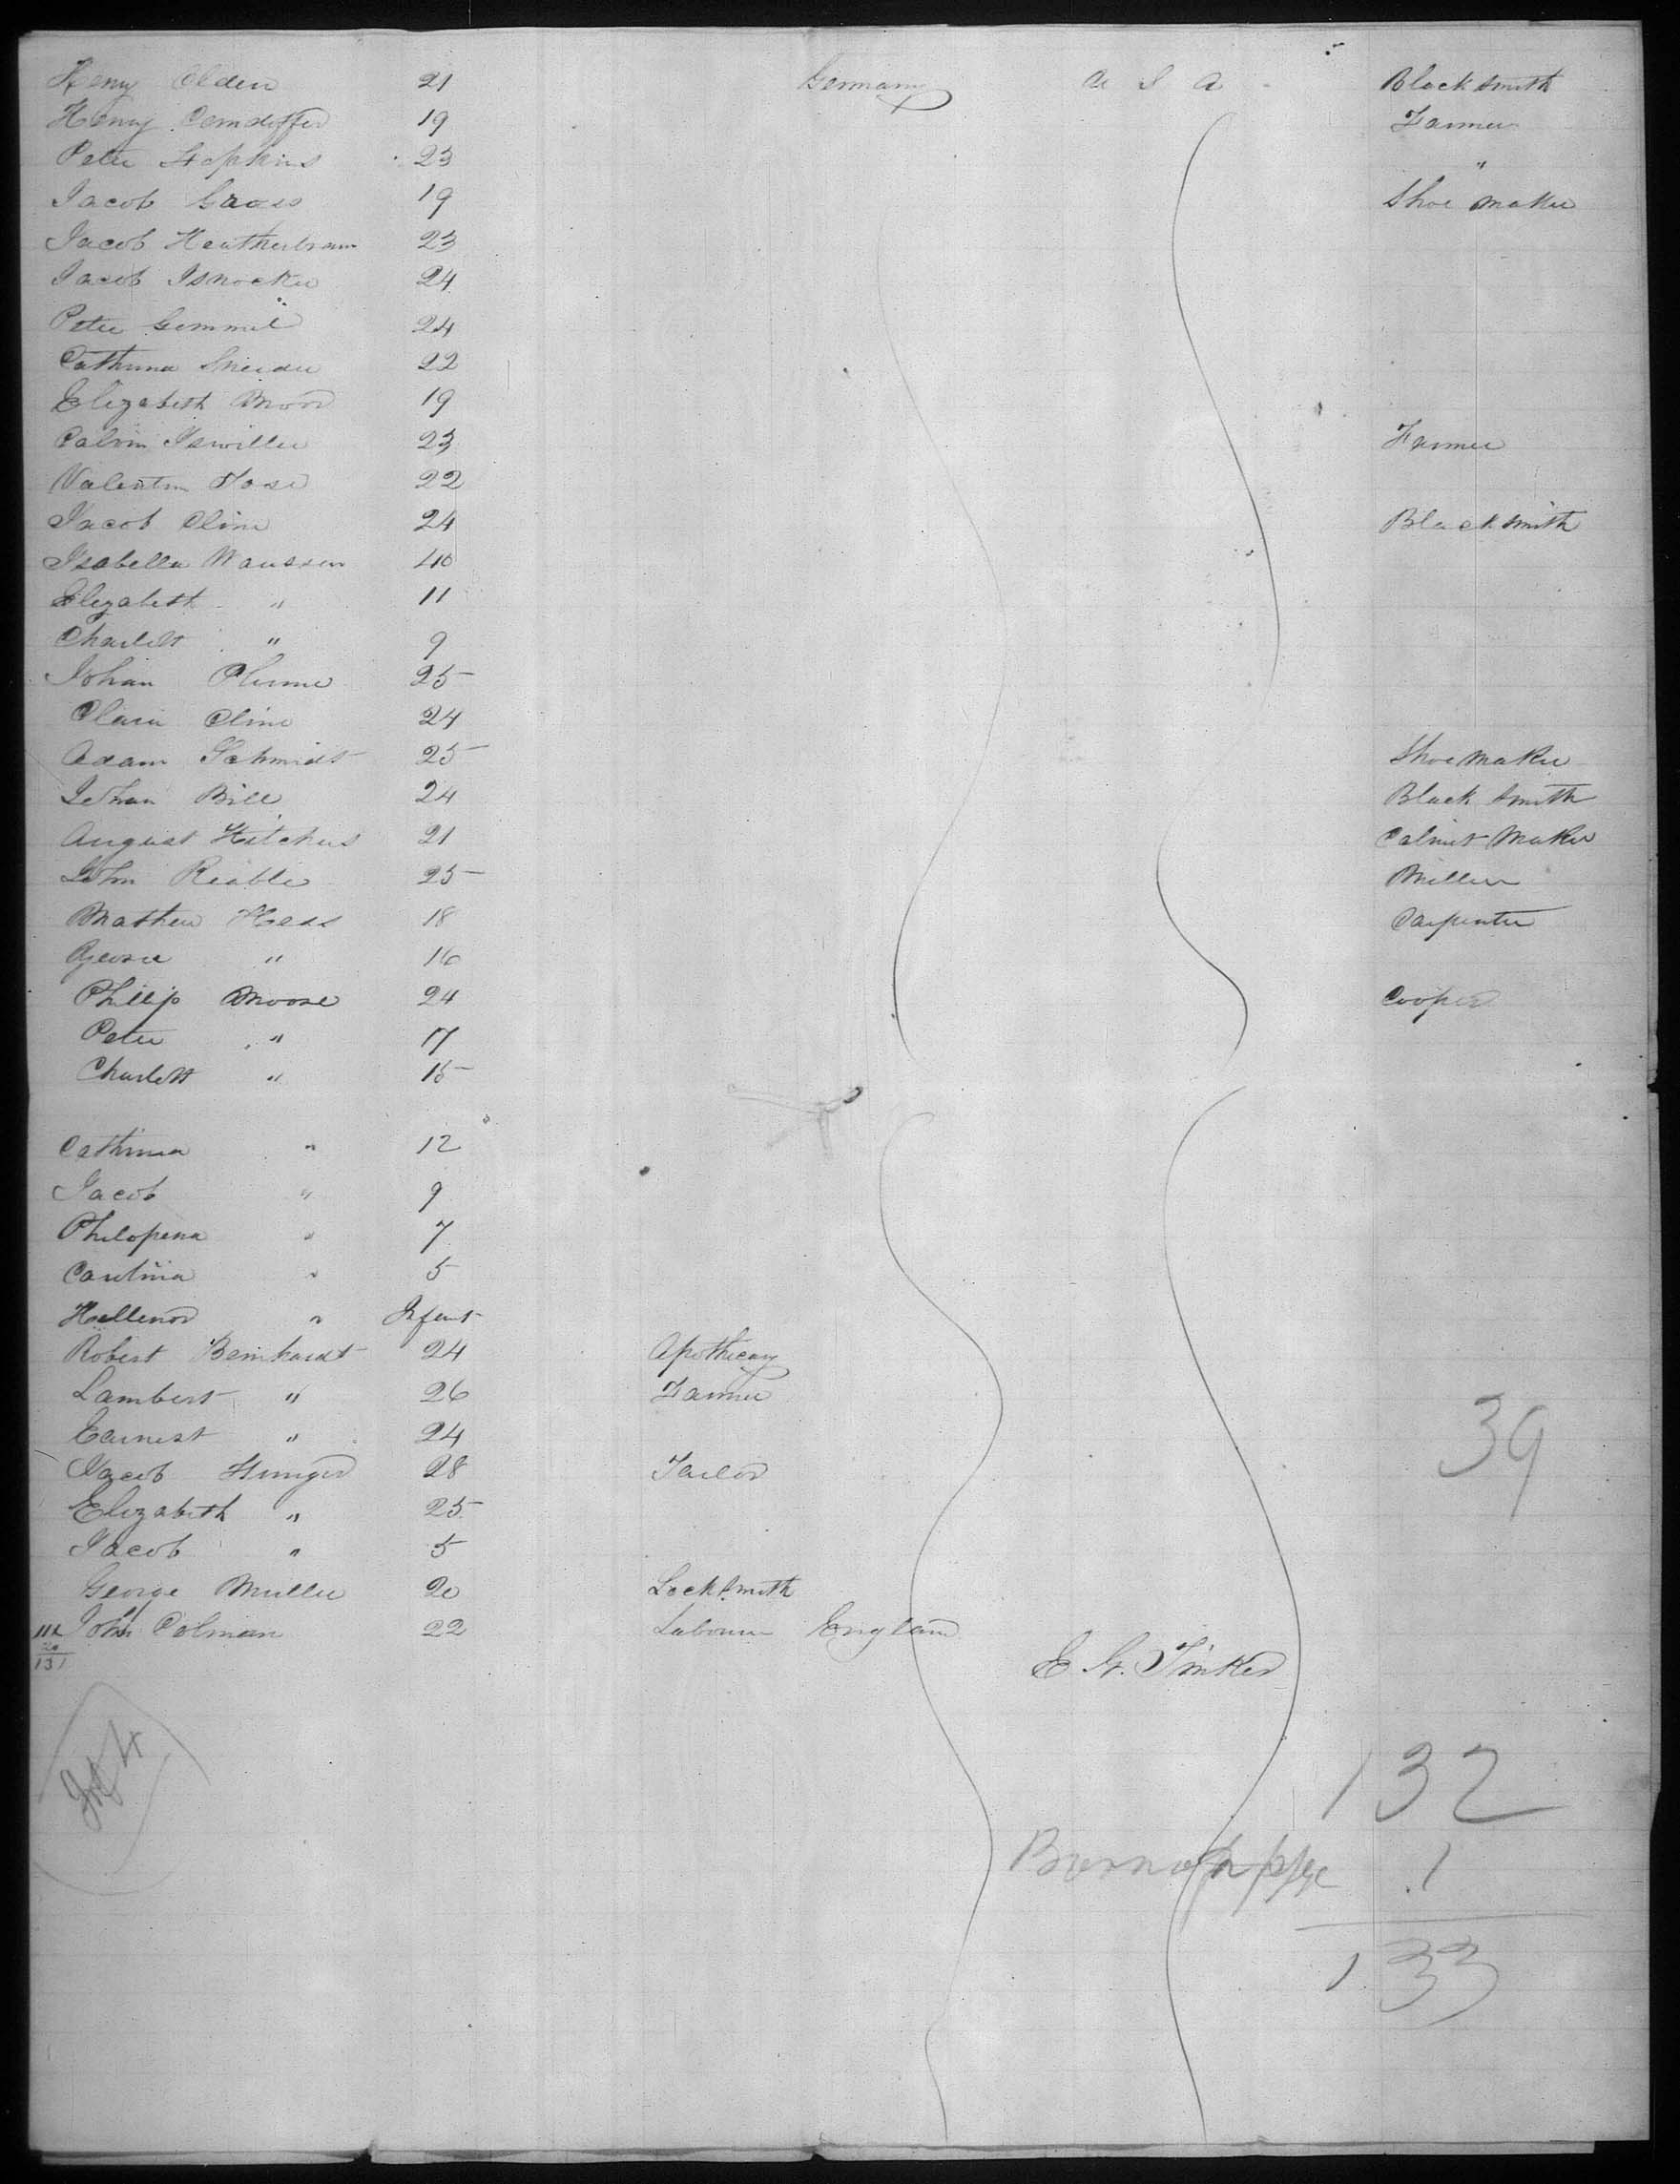 Henry Olden 21 Germany U S A Blacksmith
Henry 19 Farmer
Peter Hopkins 23 "
Jacob Gross 19 Shoe maker
Jacob 23
Jacob 24
Peter Gemmil 24
Cathrina Sneider 22
Elizabeth Moor 19
Calvin 23 Farmer
Valentin 22
Jacob Cline 24 Blacksmith
Isabella 40
Elizabeth " 11
Charlott " 9
Johan 25
Clara Cline 24
Adam Schmidt 25 Shoe maker
Johan Bill 24 Black Smith
August 21 Cabinet Maker
John 25 Miller
Mathew Hess 18 Carpenter
George " 16
Phillip Moose 24 Cooper
Peter " 17
Charlott " 15
Cathrina " 12
Jacob " 9
Philopena " 7
" 5
Hellenor " Infant
Robert Bernhardt 24 Apothecary
Lambert " 26 Farmer
Earnest " 24
39
Jacob Hunger 28 Tailor
Elizabeth " 25
Jacob " 5
George Muller 20 Lock Smith
John Colman 22 Labourer England
131
E. G. Tinker
132
Born on psge 1
133